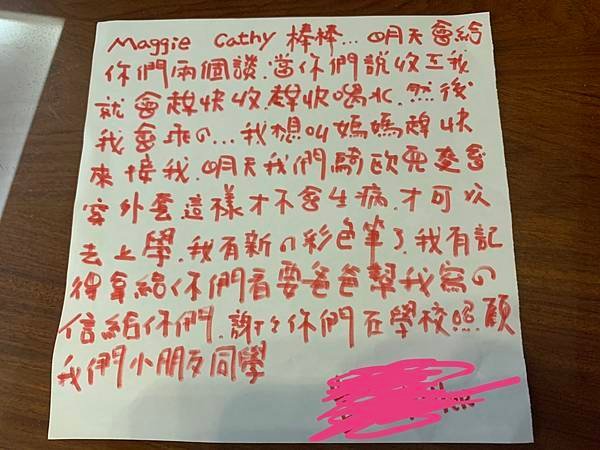 Maggie Cathy 棒棒...明天會給
你們兩個談.當你們說收工我
就會趕快收趕快喝水.然後
我會乖の...我想叫媽媽趕快
來接我.明天我們騎歐兜麥會
穿外套這樣才不會生病.才可以
去上學.我有新の彩色筆了.我有記
得拿給你們看要爸爸幫我寫の
信給你們.謝謝你們在學校照顧
我們小朋友同學